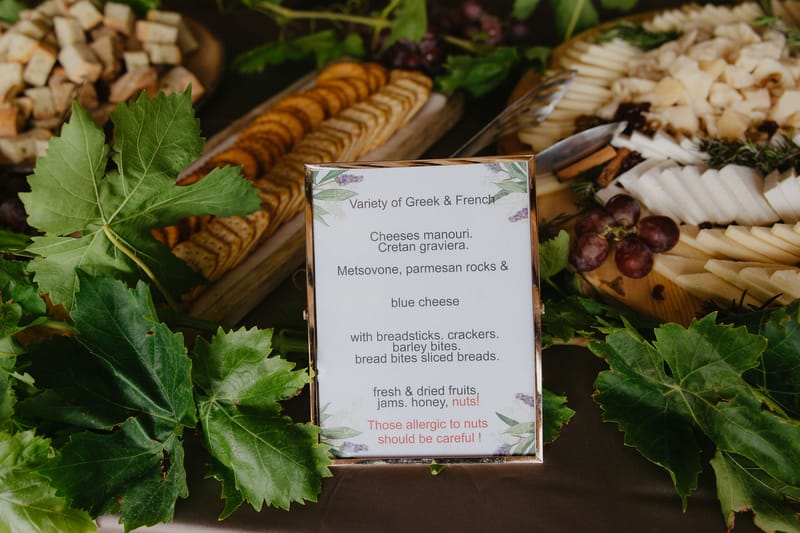 Variety of Greek & French
Cheeses manouri.
Cretan graviera.
Metsovone, parmesan rocks &
blue cheese
with breadsticks. crackers.
barley bites.
bread bites sliced breads.
fresh & dried fruits,
jams. honey, nuts!
Those allergic to nuts
should be careful !